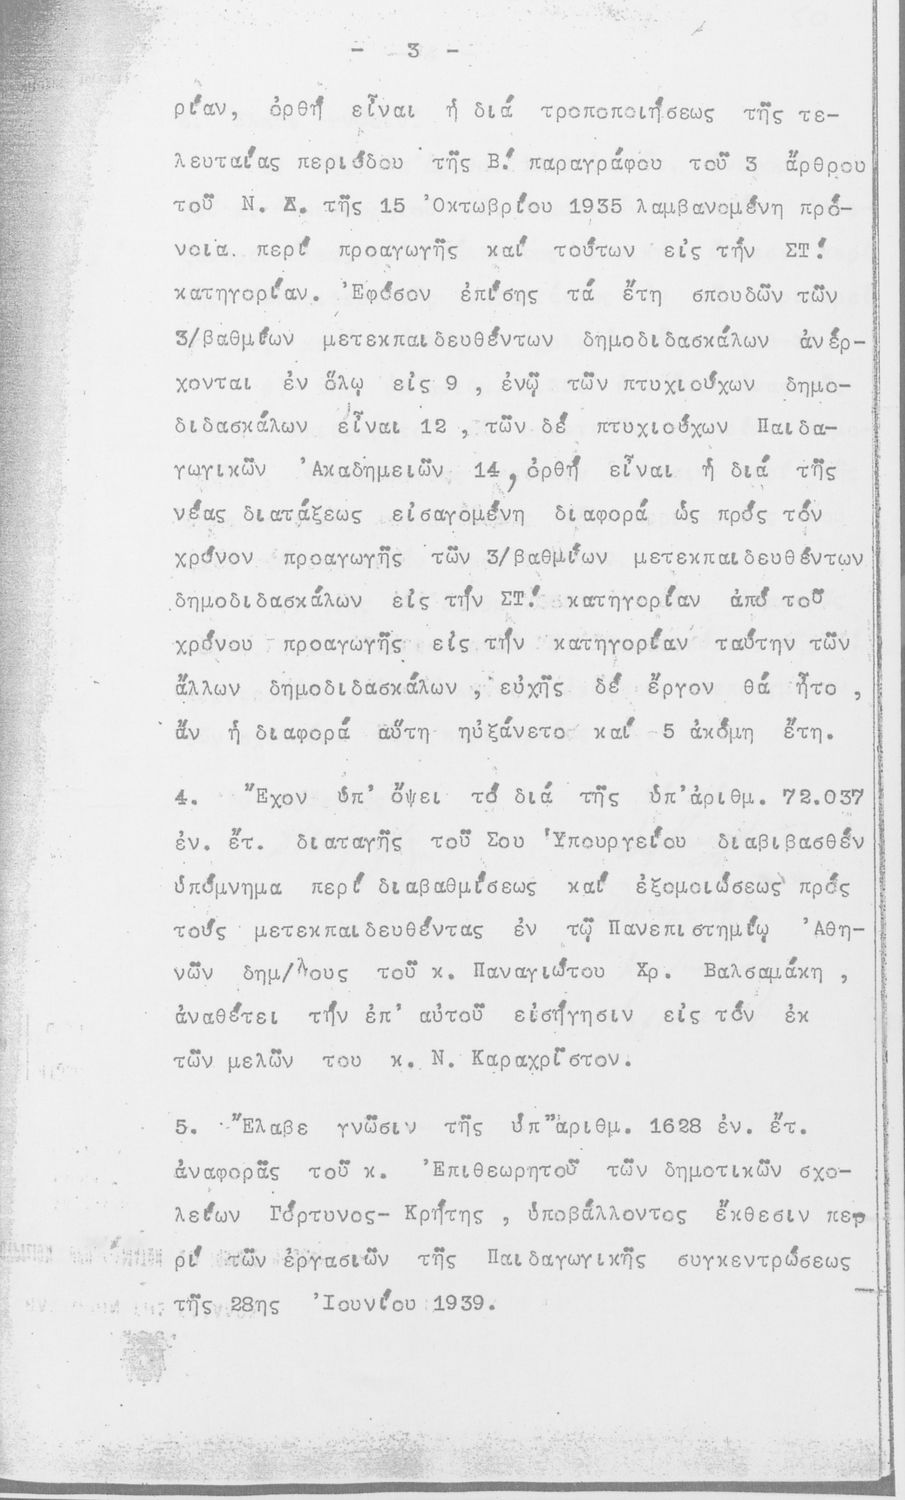 - 3 -
ρίαν, ὀρθή εἶναι ἡ διά τροποποιήσεως τῆς τε-
λευταίας περιόδου τῆς Β.΄ παραγράφου τοῦ 3 ἄρθρου
τοῦ Ν. Δ. τῆς 15 Ὀκτωβρίου 1935 λαμβανομένη πρό-
νοια περί προαγωγῆς καί τούτων εἰς τήν ΣΤ.΄
κατηγορίαν. Ἐφόσον ἐπίσης τά ἔτη σπουδῶν τῶν
3/βαθμίων μετεκπαιδευθέντων δημοδιδασκάλων ἀνέρ-
χονται ἐν ὅλῳ εἰς 9 , ἐνῷ τῶν πτυχιούχων δημο-
διδασκάλων εἶναι 12 , τῶν δέ πτυχιούχων Παιδα-
γωγικῶν Ἀκαδημειῶν 14, ὀρθή εἶναι ἡ διά τῆς
νέας διατάξεως εἰσαγομένη διαφορά ὡς πρός τόν
χρόνον προαγωγῆς τῶν 3/βαθμίων μετεκπαιδευθέντων
δημοδιδασκάλων εἰς τήν ΣΤ.΄ κατηγορίαν ἀπό τοῦ
χρόνου προαγωγῆς εἰς τήν κατηγορίαν ταύτην τῶν
ἄλλων δημοδιδασκάλων , εὐχῆς δέ ἔργον θά ἦτο ,
ἄν ἡ διαφορά αὕτη ηὐξάνετο καί 5 ἀκόμη ἔτη.
4. Ἔχον ὑπ' ὄψει τό διά τῆς ὑπ'ἀριθμ. 72.037
ἐν. ἔτ. διαταγῆς τοῦ Σου Ὑπουργείου διαβιβασθέν
ὑπόμνημα περί διαβαθμίσεως καί ἐξομοιώσεως πρός
τούς μετεκπαιδευθέντας ἐν τῷ Πανεπιστημίῳ Ἀθη-
νῶν δημ/λους τοῦ κ. Παναγιώτου Χρ. Βαλσαμάκη ,
ἀναθέτει τήν ἐπ' αὐτοῦ εἰσήγησιν εἰς τόν ἐκ
τῶν μελῶν του κ. Ν. Καραχρῖστον.
5. Ἔλαβε γνῶσιν τῆς ὑπ"ἀριθμ. 1628 ἐν. ἔτ.
ἀναφορᾶς τοῦ κ. Ἐπιθεωρητοῦ τῶν δημοτικῶν σχο-
λείων Γόρτυνος- Κρήτης , ὑποβάλλοντος ἔκθεσιν πε-
ρί τῶν ἐργασιῶν τῆς Παιδαγωγικῆς συγκεντρώσεως
τῆς 28ης Ἰουνίου 1939.